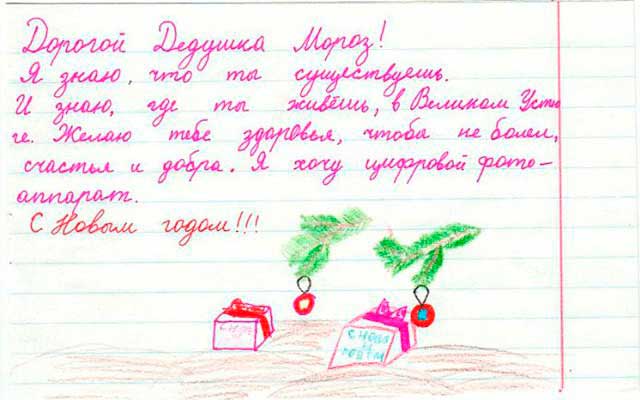 Дорогой Дедушка Мороз!
Я знаю, что ты существуешь.
И знаю, где ты живёшь, в Великом Устю
ге. Желаю тебе здоровья, чтоба не болел,
счастья и добра. Я хочу цифровой фото-
аппарат.
С Новым годом!!!